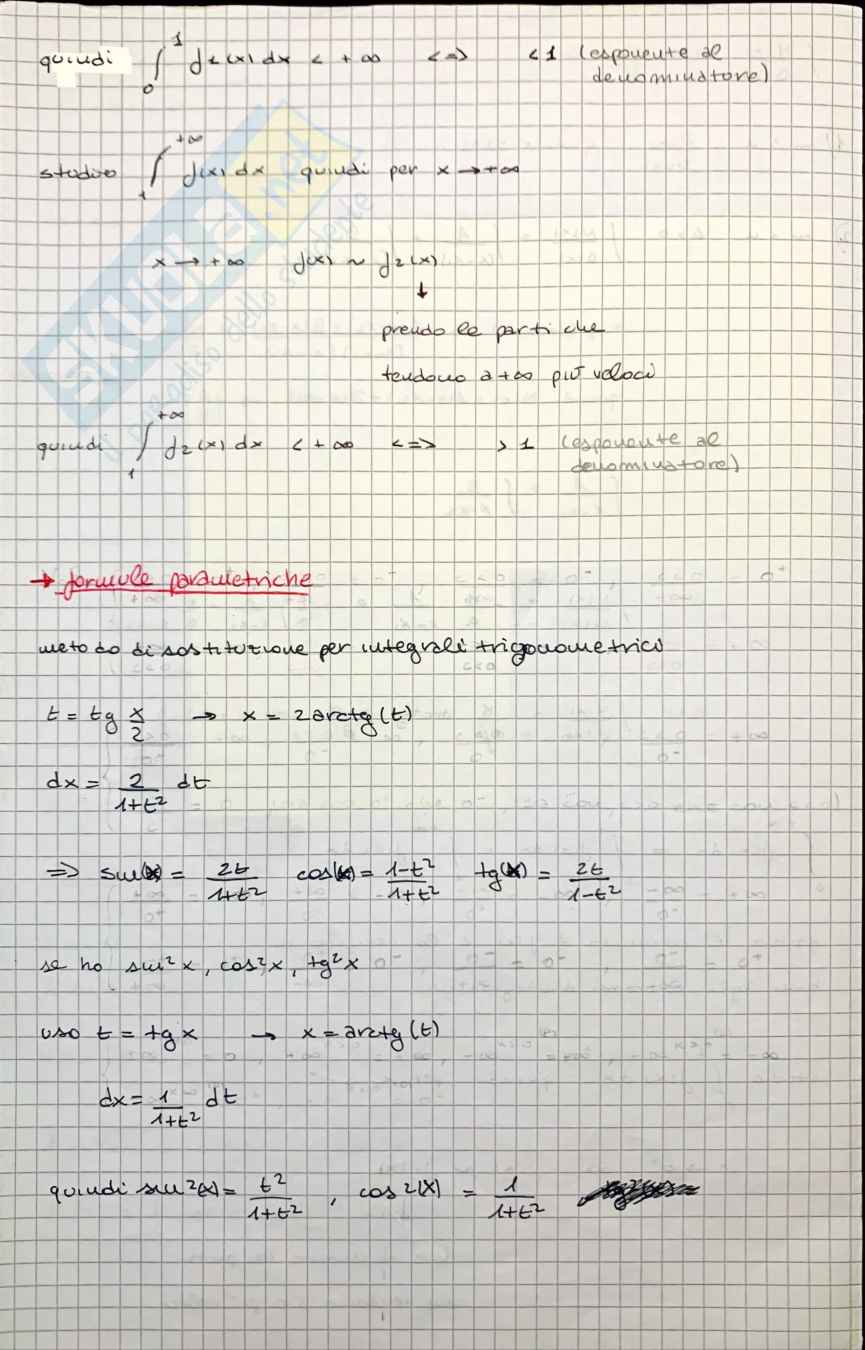 quindi ∫₀¹ f₂(x) dx < +∞ <=> < 1 (esponente al
denominatore)
studio ∫₁^+∞ f(x) dx quindi per x → +∞
x → +∞ f(x) ~ f₂(x)
↓
prendo le parti che
tendono a +∞ più veloci
quindi ∫₁^+∞ f₂(x) dx < +∞ <=> > 1 (esponente al
denominatore)
→ formule parametriche
metodo di sostituzione per integrali trigonometrici
t = tg x/2 → x = 2arctg(t)
dx = 2/(1+t²) dt
=> sin(x) = 2t/(1+t²) cos(x) = (1-t²)/(1+t²) tg(x) = 2t/(1-t²)
se ho sin²x, cos²x, tg²x
uso t = tg x → x = arctg(t)
dx = 1/(1+t²) dt
quindi sin²(x) = t²/(1+t²), cos²(x) = 1/(1+t²)
SKUOLA.net
il paradiso dello studente